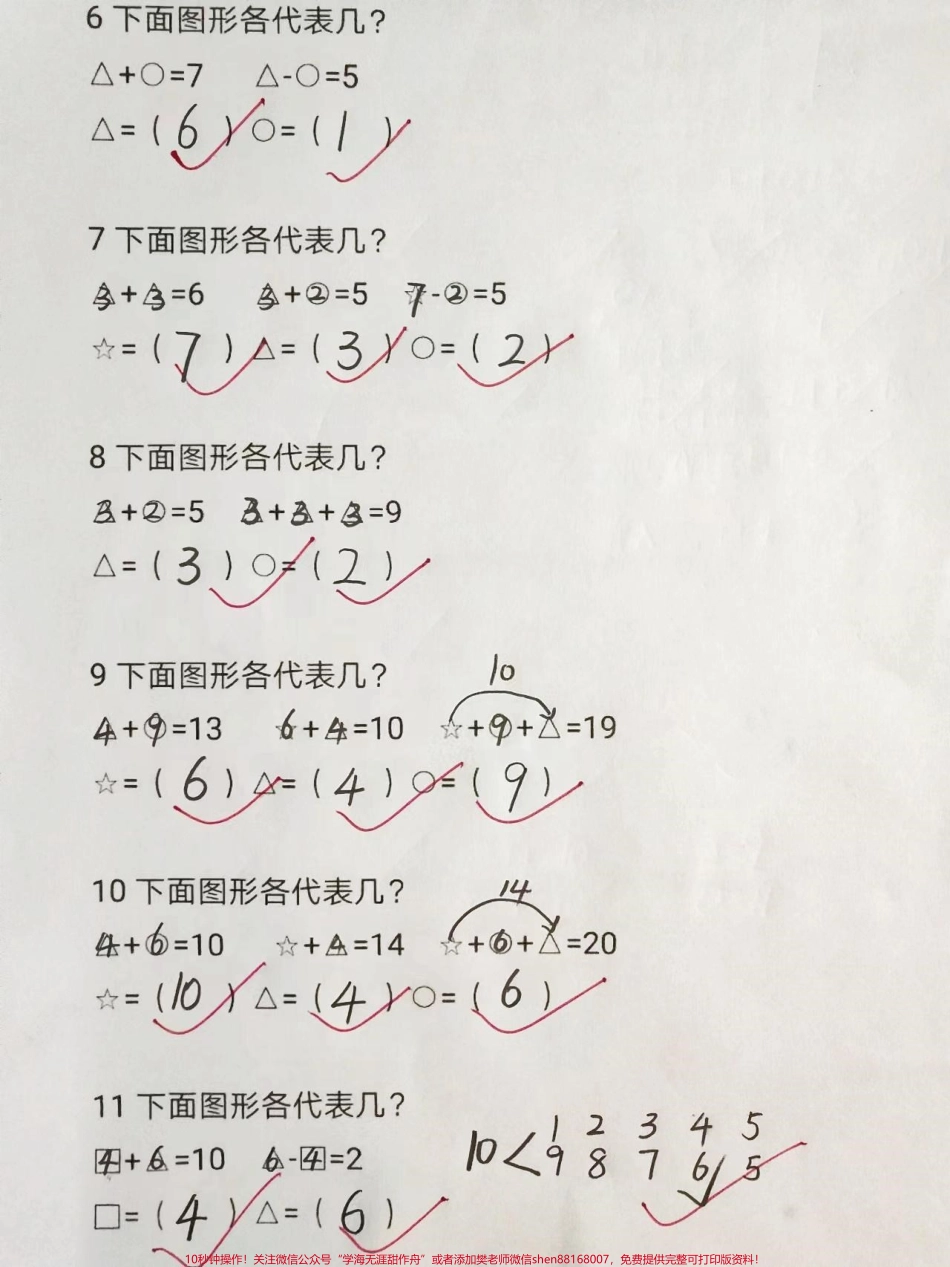 6 下面图形各代表几?
△+○=7 △-○=5
△=(6) ○=(1)
7 下面图形各代表几?
3+3=6 3+②=5 7-②=5
☆=(7) △=(3) ○=(2)
8 下面图形各代表几?
3+②=5 3+3+3=9
△=(3) ○=(2)
9 下面图形各代表几?
10
4+9=13 6+4=10 ☆+9+△=19
☆=(6) △=(4) ○=(9)
10 下面图形各代表几?
14
4+6=10 ☆+4=14 ☆+6+△=20
☆=(10) △=(4) ○=(6)
11 下面图形各代表几?
4+6=10 6-4=2
□=(4) △=(6)
10< 1 2 3 4 5
9 8 7 6 5
10秒钟操作!关注微信公众号“学海无涯甜作舟”或者添加樊老师微信shen88168007,免费提供完整可打印版资料!